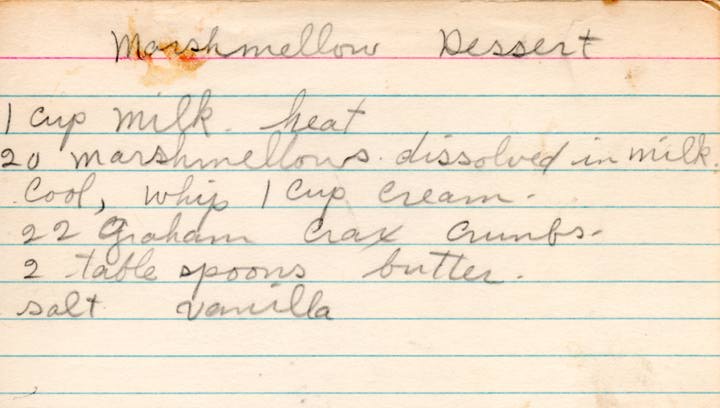 Marshmellow Dessert
1 cup milk. heat
20 marshmellows. dissolved in milk.
Cool, whip 1 cup cream.
22 Graham Crax Crumbs.
2 table spoons butter.
salt vanilla